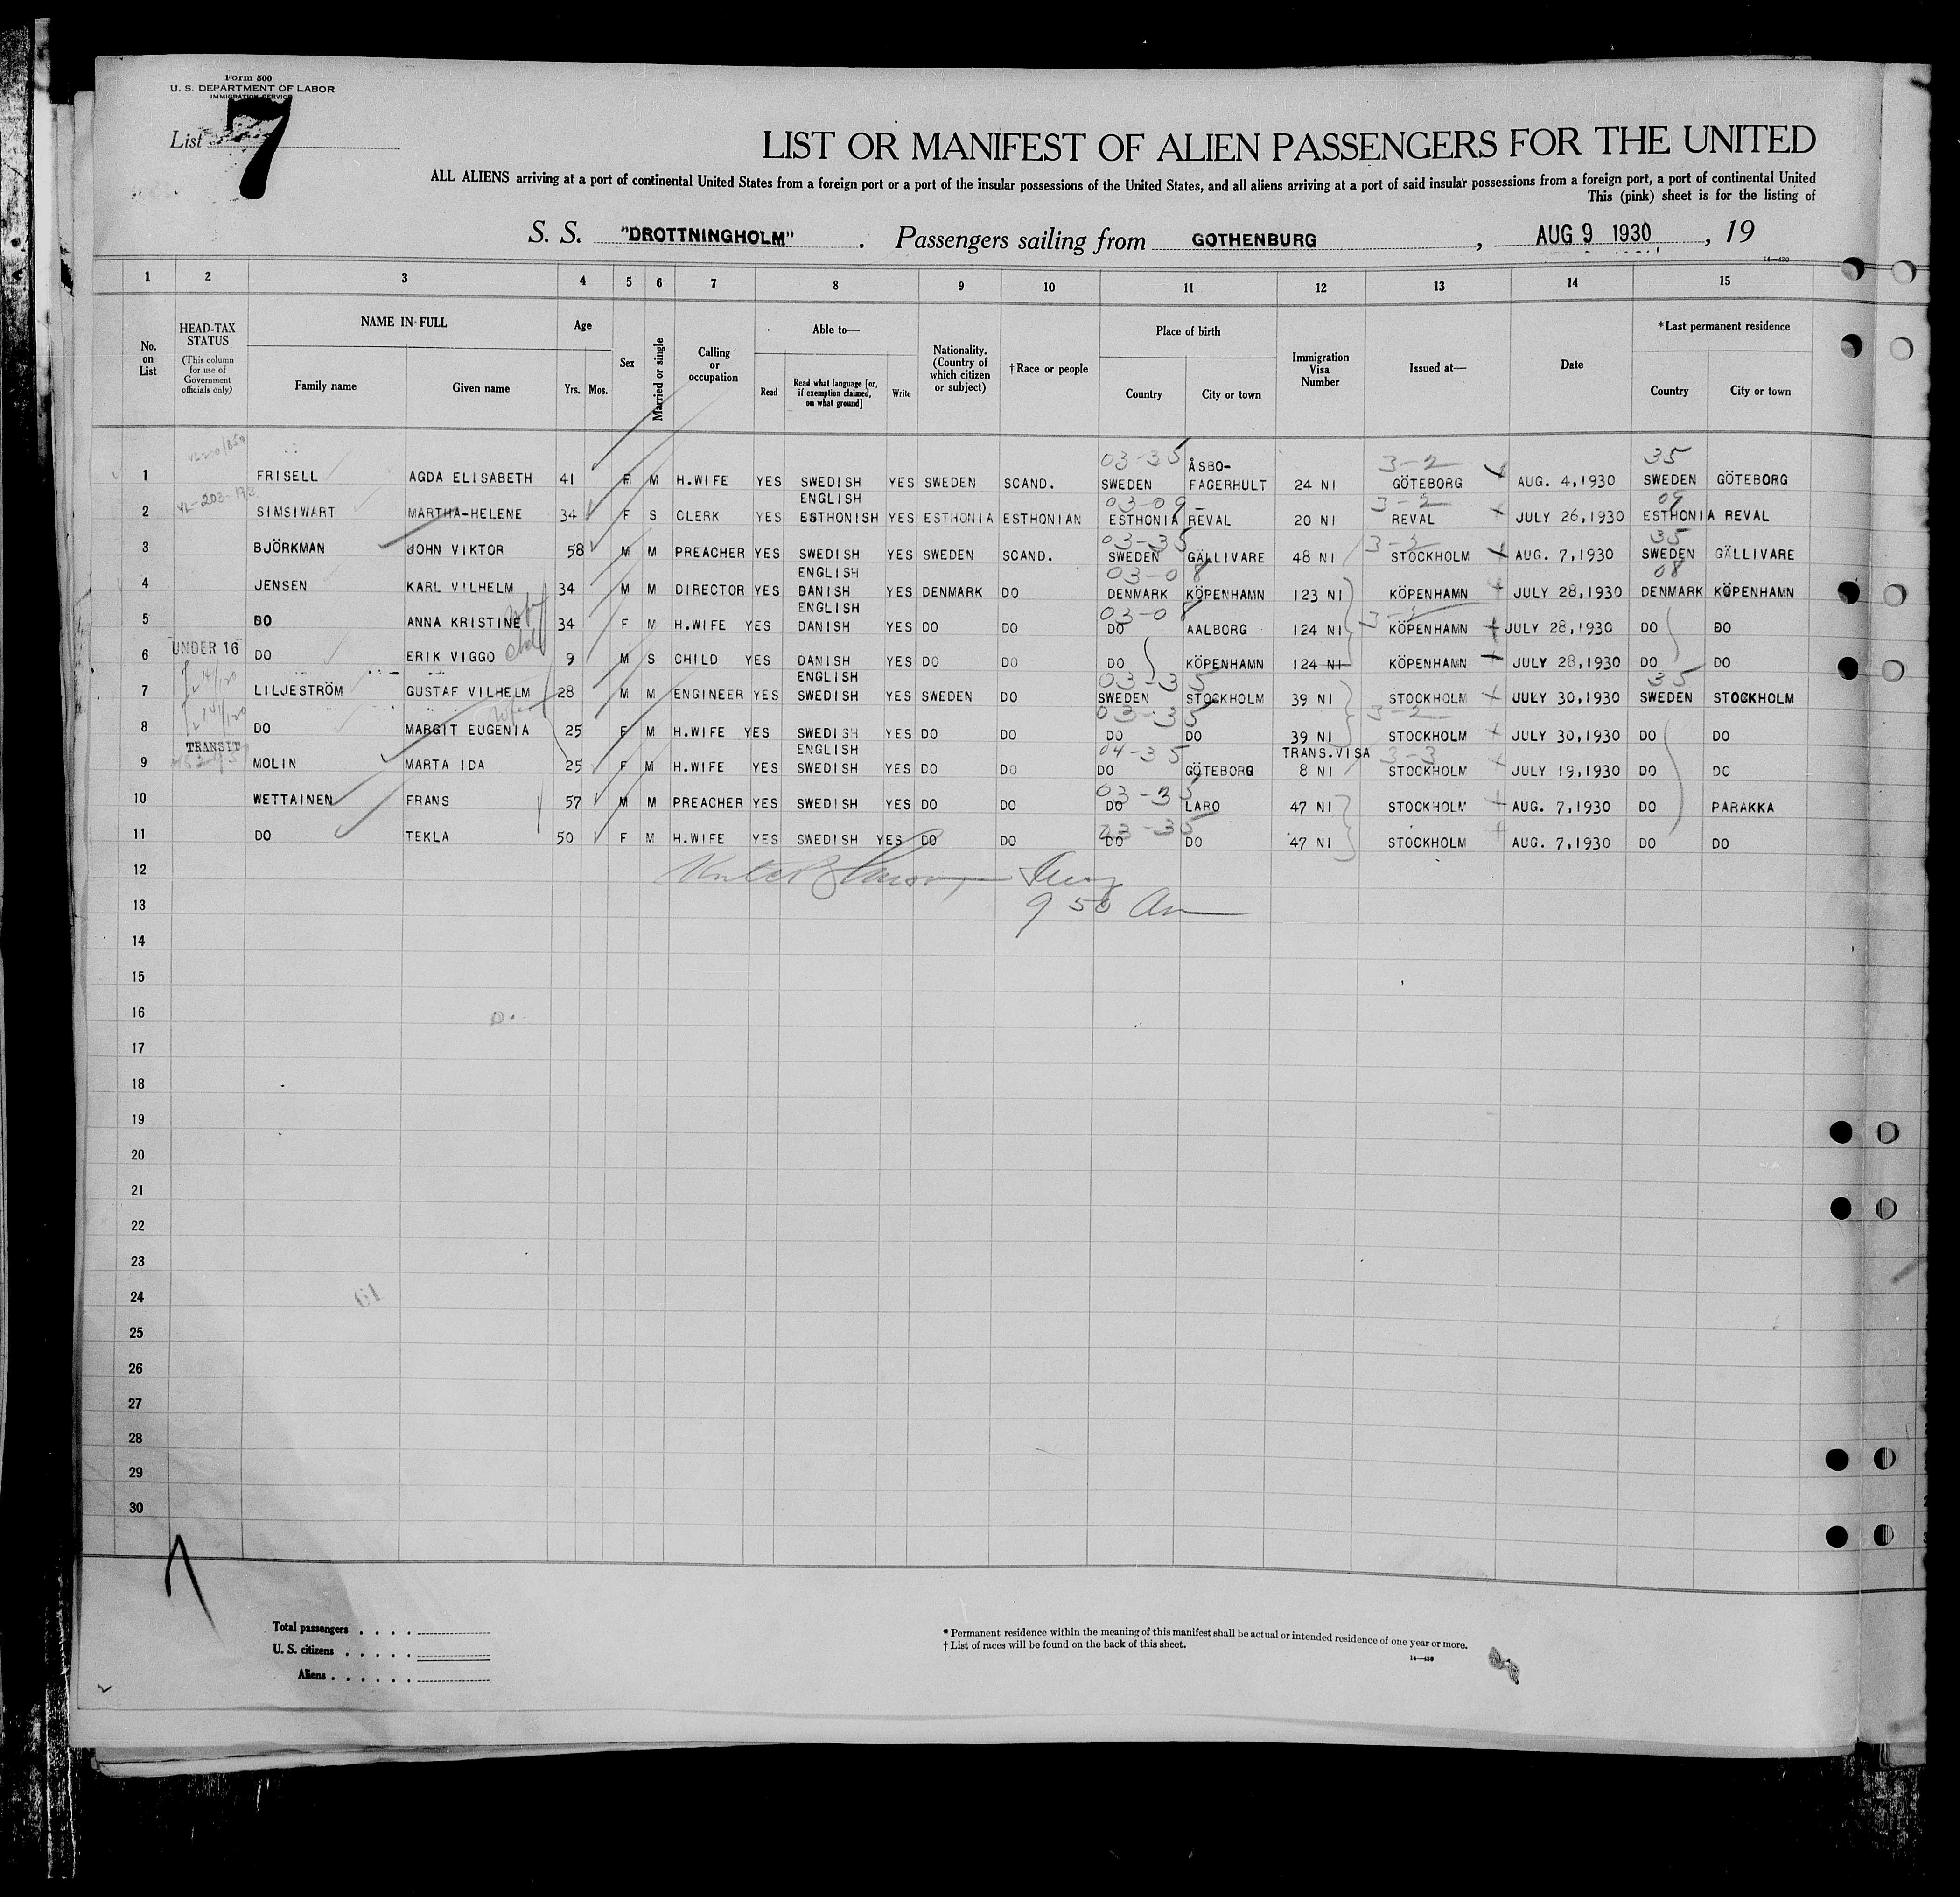 Form 500
U. S. DEPARTMENT OF LABOR
IMMIGRATION SERVICE
List 7
LIST OR MANIFEST OF ALIEN PASSENGERS FOR THE UNITED
ALL ALIENS arriving at a port of continental United States from a foreign port or a port of the insular possessions of the United States, and all aliens arriving at a port of said insular possessions from a foreign port, a port of continental United
This (pink) sheet is for the listing of
S. S. "DROTTNINGHOLM" . Passengers sailing from GOTHENBURG , AUG 9 1930 , 19
14—430
1 2 3 4 5 6 7 8 9 10 11 12 13 14 15
No. on List HEAD-TAX STATUS (This column for use of Government officials only) NAME IN FULL Family name Given name Age Yrs. Mos. Sex Married or single Calling or occupation Able to— Read Read what language [or, if exemption claimed, on what ground] Write Nationality. (Country of which citizen or subject) †Race or people Place of birth Country City or town Immigration Visa Number Issued at— Date *Last permanent residence Country City or town
03-35 ÅSBO- 3-2 35
1 FRISELL AGDA ELISABETH 41 F M H.WIFE YES SWEDISH YES SWEDEN SCAND. SWEDEN FAGERHULT 24 NI GÖTEBORG AUG. 4,1930 SWEDEN GÖTEBORG
ENGLISH 03-09 3-2 09
2 SIMSIWART MARTHA-HELENE 34 F S CLERK YES ESTHONISH YES ESTHONIA ESTHONIAN ESTHONIA REVAL 20 NI REVAL JULY 26,1930 ESTHONIA REVAL
03-35 35
3 BJÖRKMAN JOHN VIKTOR 58 M M PREACHER YES SWEDISH YES SWEDEN SCAND. SWEDEN GÄLLIVARE 48 NI STOCKHOLM AUG. 7,1930 SWEDEN GÄLLIVARE
ENGLISH 03-08 08
4 JENSEN KARL VILHELM 34 M M DIRECTOR YES DANISH YES DENMARK DO DENMARK KÖPENHAMN 123 NI KÖPENHAMN JULY 28,1930 DENMARK KÖPENHAMN
ENGLISH 03-08
5 DO ANNA KRISTINE 34 F M H.WIFE YES DANISH YES DO DO DO AALBORG 124 NI KÖPENHAMN JULY 28,1930 DO DO
6 UNDER 16 DO ERIK VIGGO 9 M S CHILD YES DANISH YES DO DO DO KÖPENHAMN 124 NI KÖPENHAMN JULY 28,1930 DO DO
ENGLISH 03-35 35
7 LILJESTRÖM GUSTAF VILHELM 28 M M ENGINEER YES SWEDISH YES SWEDEN DO SWEDEN STOCKHOLM 39 NI STOCKHOLM JULY 30,1930 SWEDEN STOCKHOLM
wife 03-35 3-2
8 DO MARGIT EUGENIA 25 F M H.WIFE YES SWEDISH YES DO DO DO DO 39 NI STOCKHOLM JULY 30,1930 DO DO
TRANSIT ENGLISH 04-35 TRANS.VISA 3-3
9 MOLIN MARTA IDA 25 F M H.WIFE YES SWEDISH YES DO DO DO GÖTEBORG 8 NI STOCKHOLM JULY 19,1930 DO DO
03-35
10 WETTAINEN FRANS 57 M M PREACHER YES SWEDISH YES DO DO DO LARO 47 NI STOCKHOLM AUG. 7,1930 DO PARAKKA
03-35
11 DO TEKLA 50 F M H.WIFE YES SWEDISH YES DO DO DO DO 47 NI STOCKHOLM AUG. 7,1930 DO DO
12
13 9 50 Am
14
15
16
17
18
19
20
21
22
23
24
25
26
27
28
29
30
Total passengers
U. S. citizens
Aliens
* Permanent residence within the meaning of this manifest shall be actual or intended residence of one year or more.
† List of races will be found on the back of this sheet.
14—430